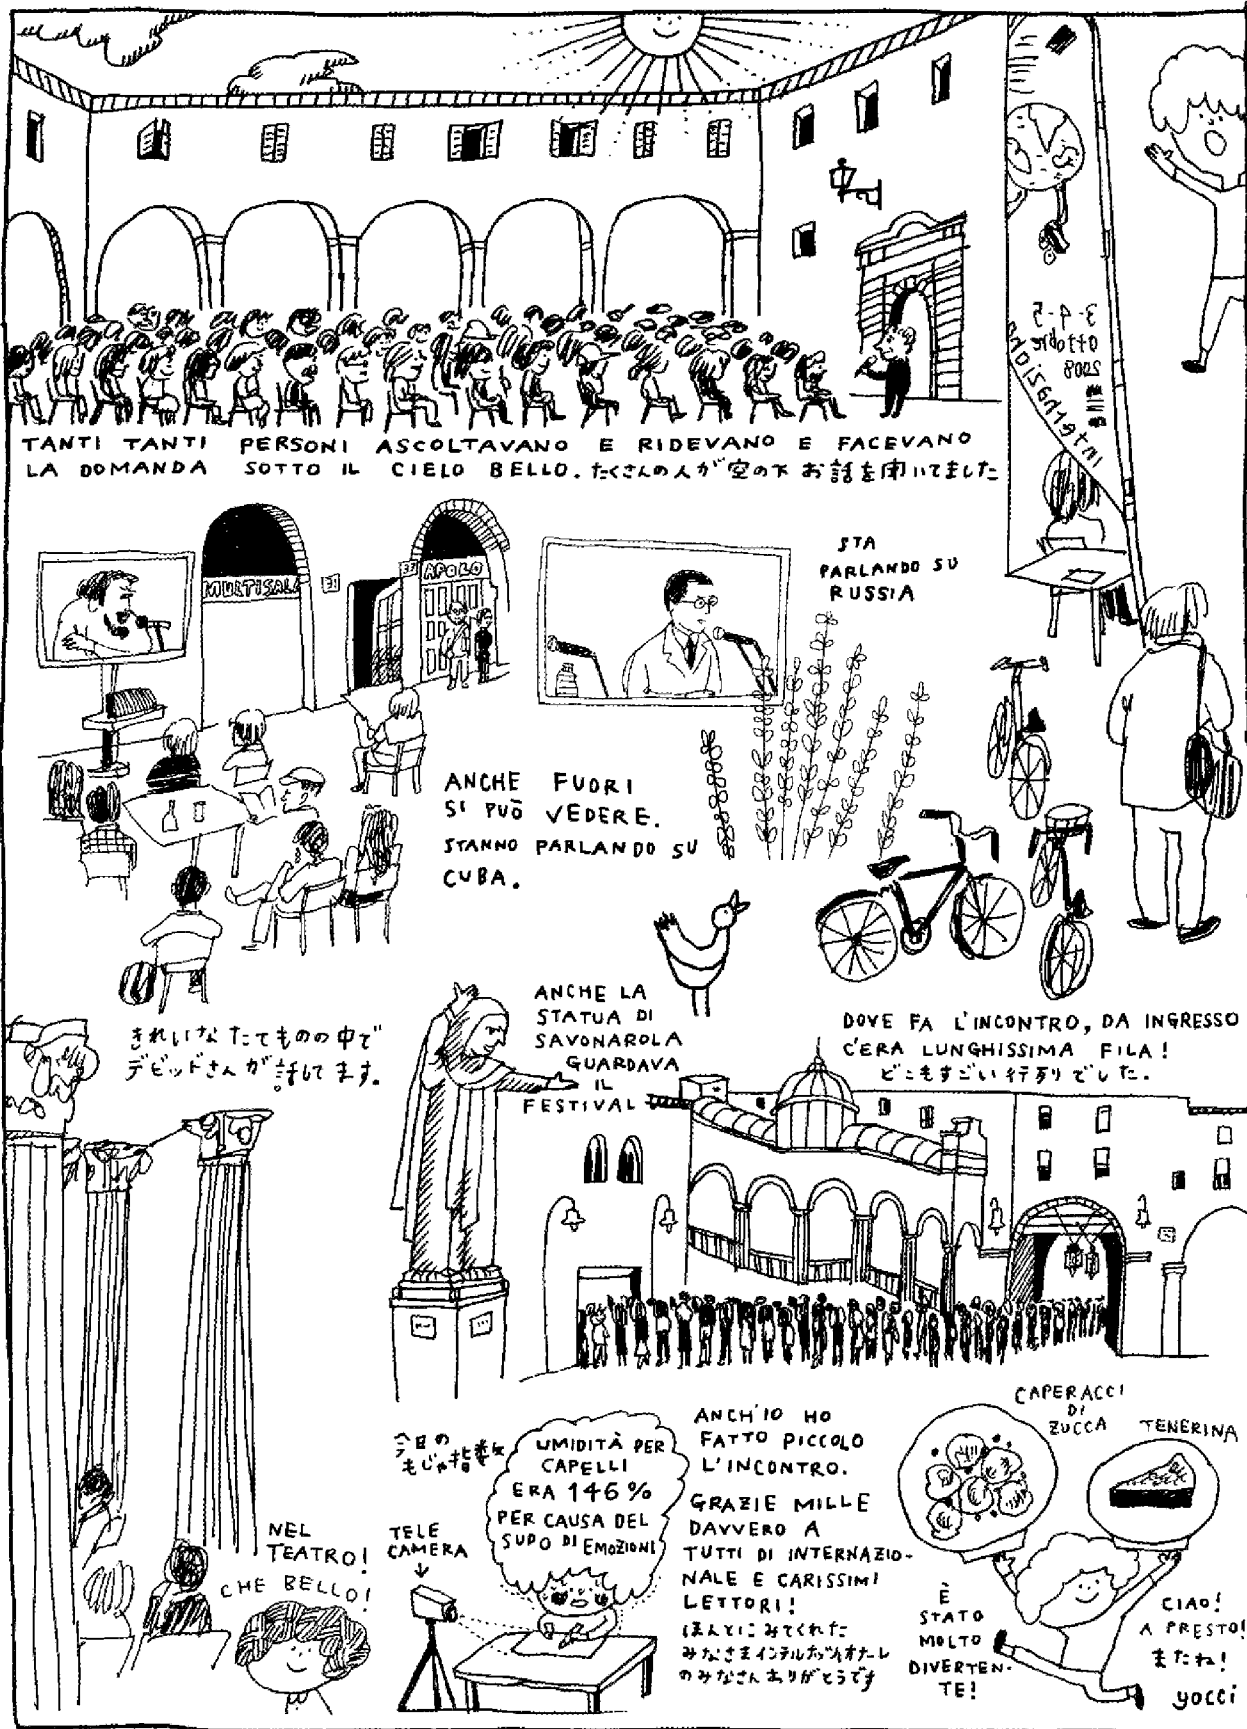 TANTI TANTI PERSONI ASCOLTAVANO E RIDEVANO E FACEVANO
LA DOMANDA SOTTO IL CIELO BELLO. たくさんの人が空の下お話を聞いてました
3-4-5
ottobre
2008
internazional
MULTISALA
31
APOLO
STA
PARLANDO SU
RUSSIA
ANCHE FUORI
SI PUÒ VEDERE.
STANNO PARLANDO SU
CUBA.
きれいなたてものの中で
デビッドさんが話してます。
ANCHE LA
STATUA DI
SAVONAROLA
GUARDAVA
IL
FESTIVAL
DOVE FA L'INCONTRO, DA INGRESSO
C'ERA LUNGHISSIMA FILA!
どこもすごい行列でした.
NEL
TEATRO!
CHE BELLO!
今日の
もじゃ指数は
UMIDITÀ PER
CAPELLI
ERA 146%
PER CAUSA DEL
SUDO DI EMOZIONI
TELE
CAMERA
ANCH'IO HO
FATTO PICCOLO
L'INCONTRO.
GRAZIE MILLE
DAVVERO A
TUTTI DI INTERNAZIO-
NALE E CARISSIMI
LETTORI!
ほんとにみてくれた
みなさまインテルナツィオナーレ
のみなさんありがとうです
CAPERACCI
DI
ZUCCA
TENERINA
È
STATO
MOLTO
DIVERTEN-
TE!
CIAO!
A PRESTO!
またね!
yocci